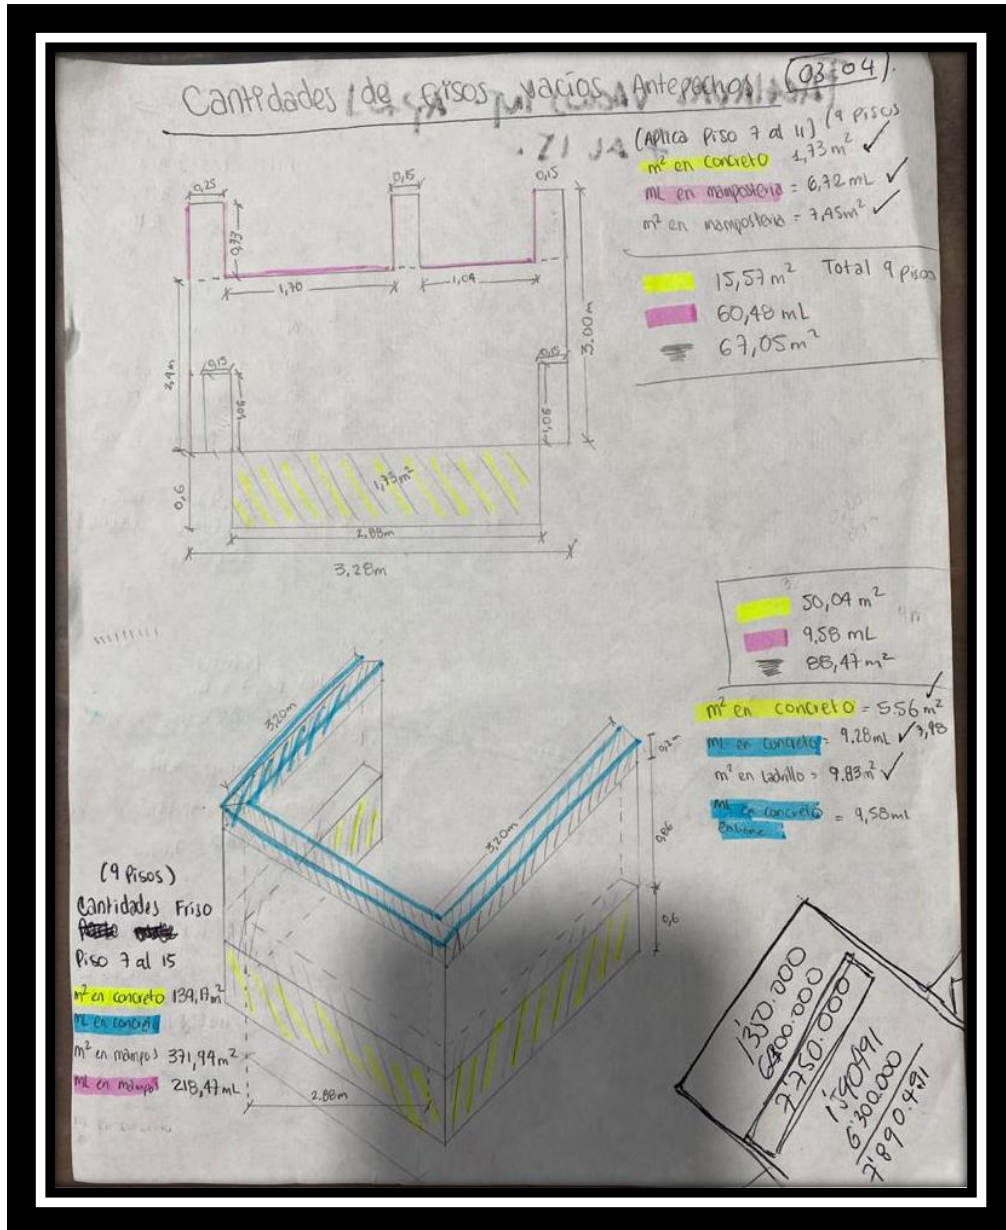 Cantidades de frisos vacíos Antepechos (03 04).
(Aplica Piso 7 al 11) (9 Pisos
m² en concreto 1,73m² ✓
mL en mampostería = 6,72mL ✓
m² en mampostería = 7,45m² ✓
15,57m² Total 9 pisos
60,48 mL
67,05m²
0,25
0,15
0,15
0,73
1,70
1,04
3.00m
0,15
0,15
1,06
1,06
0,6
1,73m²
2.88m
3,28m
50,04 m²
9,58 mL
88,47m²
m² en concreto = 5.56m² ✓
mL en concreto = 9.28mL ✓
m² en ladrillo = 9.83m² ✓
mL en concreto = 9,58mL
3,20m
3,20m
0,86
0,6
2.88m
(9 Pisos)
Cantidades Friso
Piso 7 al 15
m² en concreto 139,17m²
mL en concreto
m² en mampos 371,94m²
mL en mampos 218,47mL
1'350.000
6'400.000
7'750.000
1'590.491
6'300.000
7'890.491